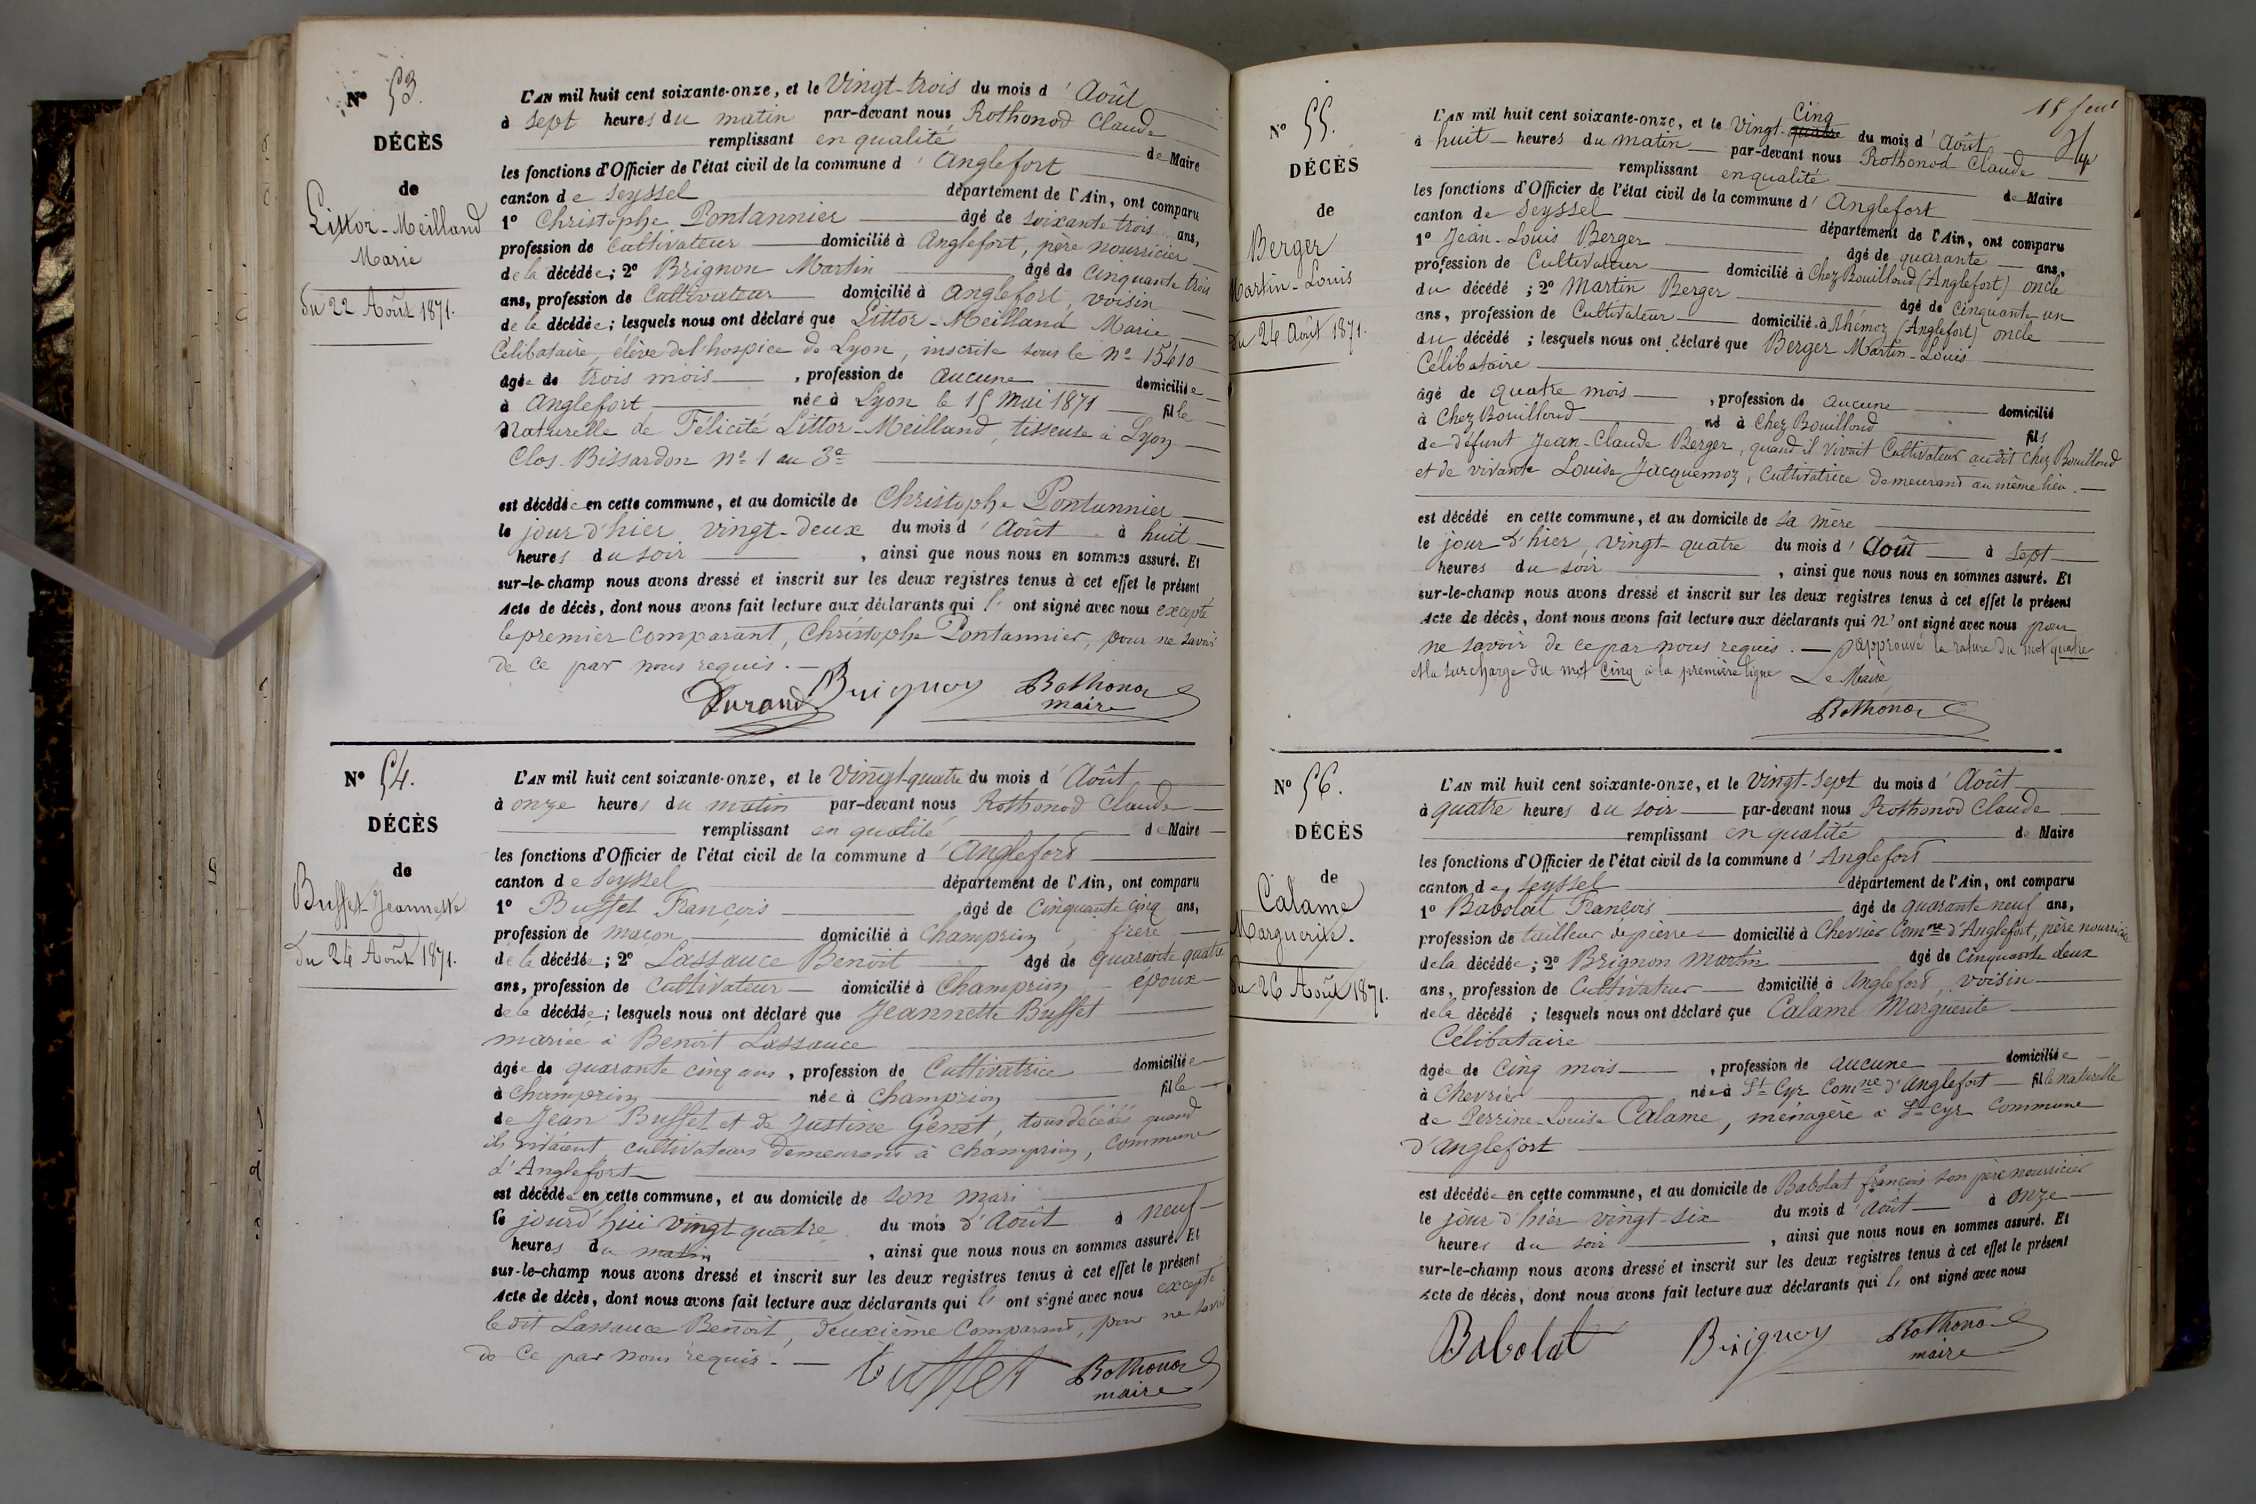 Nº 53.
DÉCÈS
de
Littor-Meilland
Marie
du 22 Août 1871.
L'AN mil huit cent soixante-onze, et le Vingt-trois du mois d'Août
à sept heures du matin par-devant nous Rothonod Claude
remplissant en qualité de Maire
les fonctions d'Officier de l'état civil de la commune d'Anglefort
canton de Seyssel département de l'Ain, ont comparu
1º Christophe Pontannier âgé de soixante trois ans,
profession de Cultivateur domicilié à Anglefort, père nourricier
de la décédée; 2º Brignon Martin âgé de cinquante trois
ans, profession de Cultivateur domicilié à Anglefort, voisin
de la décédée; lesquels nous ont déclaré que Littor-Meilland Marie
Célibataire, élève de l'hospice de Lyon, inscrite sous le Nº 15410
âgée de trois mois, profession de aucune domiciliée
à Anglefort née à Lyon le 15 Mai 1871 fille
Naturelle de Félicité Littor-Meilland, tisseuse à Lyon
Clos Bissardon Nº 1 au 3e
est décédée en cette commune, et au domicile de Christophe Pontannier
le jour d'hier vingt-deux du mois d'Août à huit
heures du soir, ainsi que nous nous en sommes assuré. Et
sur-le-champ nous avons dressé et inscrit sur les deux registres tenus à cet effet le présent
Acte de décès, dont nous avons fait lecture aux déclarants qui l' ont signé avec nous excepté
le premier comparant, Christophe Pontannier, pour ne savoir
de ce par nous requis.
Durand Brignon Rothonod
maire
Nº 54.
DÉCÈS
de
Buffet Jeannette
du 24 Août 1871.
L'AN mil huit cent soixante-onze, et le Vingt-quatre du mois d'Août
à onze heures du matin par-devant nous Rothonod Claude
remplissant en qualité de Maire
les fonctions d'Officier de l'état civil de la commune d'Anglefort
canton de Seyssel département de l'Ain, ont comparu
1º Buffet François âgé de Cinquante cinq ans,
profession de maçon domicilié à Champrion, frère
de la décédée; 2º Lassauce Benoît âgé de quarante quatre
ans, profession de Cultivateur domicilié à Champrion époux
de la décédée; lesquels nous ont déclaré que Jeannette Buffet
mariée à Benoît Lassauce
âgée de quarante cinq ans, profession de Cultivatrice domiciliée
à Champrion née à Champrion fille
de Jean Buffet et de Justine Genet, tous décédés quand
ils vivaient cultivateurs demeurans à Champrion, commune
d'Anglefort
est décédée en cette commune, et au domicile de son mari
le jourd'hui vingt quatre du mois d'Août à neuf
heures du matin, ainsi que nous nous en sommes assuré. Et
sur-le-champ nous avons dressé et inscrit sur les deux registres tenus à cet effet le présent
Acte de décès, dont nous avons fait lecture aux déclarants qui l' ont signé avec nous excepté
le dit Lassauce Benoît, deuxième Comparant, pour ne savoir
de ce par nous requis.
Buffet Rothonod
maire
15 feut
Nº 55.
DÉCÈS
de
Berger
Martin-Louis
du 24 Août 1871.
Cinq
L'AN mil huit cent soixante-onze, et le Vingt-quatre du mois d'Août
à huit heures du matin par-devant nous Rothonod Claude
remplissant en qualité de Maire
les fonctions d'Officier de l'état civil de la commune d'Anglefort
canton de Seyssel département de l'Ain, ont comparu
1º Jean-Louis Berger âgé de quarante ans,
profession de Cultivateur domicilié à Chez Bouilloud (Anglefort) oncle
du décédé; 2º Martin Berger âgé de cinquante un
ans, profession de Cultivateur domicilié à Rhémoz (Anglefort) oncle
du décédé; lesquels nous ont déclaré que Berger Martin-Louis
Célibataire
âgé de quatre mois, profession de aucune domicilié
à Chez Bouilloud né à Chez Bouilloud fils
de défunt Jean-Claude Berger, quand il vivait Cultivateur audit Chez Bouilloud
et de vivante Louise Jacquemoz, Cultivatrice demeurant au même lieu.
est décédé en cette commune, et au domicile de sa mère
le jour d'hier, vingt-quatre du mois d'Août à sept
heures du soir, ainsi que nous nous en sommes assuré. Et
sur-le-champ nous avons dressé et inscrit sur les deux registres tenus à cet effet le présent
Acte de décès, dont nous avons fait lecture aux déclarants qui n'ont signé avec nous pour
ne savoir de ce par nous requis. — J'approuve la rature du mot quatre
et la surcharge du mot cinq à la première ligne Le Maire
Rothonod
Nº 56.
DÉCÈS
de
Calame
Marguerite.
du 26 Août 1871.
L'AN mil huit cent soixante-onze, et le vingt-sept du mois d'Août
à quatre heures du soir par-devant nous Rothonod Claude
remplissant en qualité de Maire
les fonctions d'Officier de l'état civil de la commune d'Anglefort
canton de Seyssel département de l'Ain, ont comparu
1º Babolat François âgé de quarante neuf ans,
profession de tailleur de pierres domicilié à Chevrier Comne d'Anglefort, père nourricier
de la décédée; 2º Brignon Martin âgé de Cinquante deux
ans, profession de Cultivateur domicilié à Anglefort, voisin
de la décédé; lesquels nous ont déclaré que Calame Marguerite
Célibataire
âgée de Cinq mois, profession de aucune domiciliée
à Chevrier née à St Cyr Comne d'Anglefort fille naturelle
de Perrine-Louise Calame, ménagère à St Cyr Commune
d'Anglefort
est décédée en cette commune, et au domicile de Babolat françois son père nourricier
le jour d'hier vingt-six du mois d'Août à onze
heures du soir, ainsi que nous nous en sommes assuré. Et
sur-le-champ nous avons dressé et inscrit sur les deux registres tenus à cet effet le présent
Acte de décès, dont nous avons fait lecture aux déclarants qui l' ont signé avec nous
Babolat Brignon Rothonod
maire